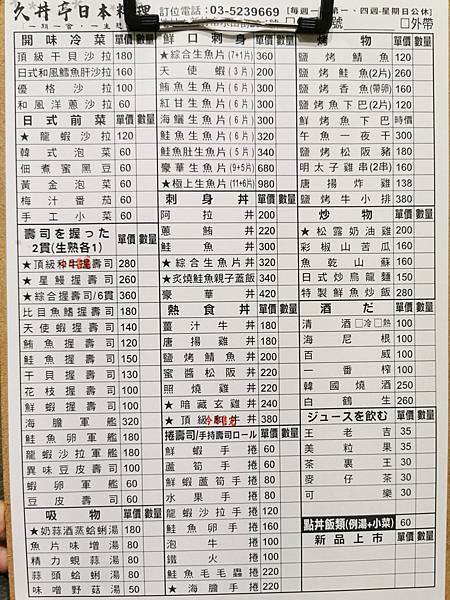 久井亭日本料理
訂位電話：03-5239669
【每週一、第一、四週星期日公休】
號
□外帶
開味冷菜 單價 數量
頂級干貝沙拉 180
日式和風鱈魚肝沙拉 160
優格沙拉 100
和風洋蔥沙拉 60
日式前菜 單價 數量
★龍蝦沙拉 120
韓式泡菜 60
佃煮蜜黑豆 60
黃金泡菜 60
梅汁番茄 60
手工小菜 60
壽司を握った 2貫(生熟各1) 單價 數量
★頂級和牛握壽司 280
★星鰻握壽司 280
★綜合握壽司/6貫 360
比目魚鰭握壽司 180
天使蝦握壽司 140
鮪魚握壽司 120
鮭魚握壽司 150
干貝握壽司 130
花枝握壽司 100
鮮蝦握壽司 100
海膽軍艦 320
鮭魚卵軍艦 180
龍蝦沙拉軍艦 120
異味豆皮壽司 100
蝦卵軍艦 60
豆皮壽司 60
吸物 單價 數量
★奶蒜酒蒸蛤蜊湯 180
魚片味增湯 80
精力蜆蒜湯 80
蒜頭蛤蜊湯 80
味增野菇湯 50
鮮口刺身 單價 數量
★綜合生魚片(7+1片) 360
天使蝦(3片) 200
鮪魚生魚片(6片) 300
紅甘生魚片(6片) 300
海鱺生魚片(6片) 300
鮭魚生魚片(6片) 320
鮭魚肚生魚片(5片) 340
豪華生魚片(9+5片) 680
★極上生魚片(11+6片) 980
刺身丼 單價 數量
阿拉丼 200
蔥鮪丼 220
鮭魚丼 300
★綜合生魚片丼 320
★炙燒鮭魚親子蓋飯 340
豪華丼 420
熱食丼 單價 數量
薑汁牛丼 180
唐揚雞丼 180
鹽烤鯖魚丼 200
蜜醬松阪丼 220
照燒雞丼 220
★暗藏玄雞丼 240
★頂級和牛丼 380
捲壽司/手持壽司ロール 單價 數量
鮮蝦手捲 60
蘆筍手捲 60
鮮蝦蘆筍手捲 80
水果手捲 80
龍蝦沙拉手捲 120
鮭魚卵手捲 160
泡牛捲 100
鐵火捲 100
鮭魚毛毛蟲捲 220
★海膽手捲 220
燒烤 單價 數量
鹽烤鯖魚 120
鹽烤鮭魚(2片) 260
鹽烤香魚(帶卵) 160
鹽烤魚下巴(2片) 120
鮮烤魚下巴 時價
午魚一夜干 300
鹽烤松阪豬 180
明太子雞串(2串) 160
唐揚炸雞 138
鹽烤牛小排 380
炒物 單價 數量
★松露奶油雞 200
彩椒山苦瓜 160
魚乾山蘇 160
日式炒烏龍麵 150
特製鮮魚炒飯 280
酒だ 單價 數量
清酒□冷□熱 100
海尼根 100
百威 100
一番榨 100
韓國燒酒 250
白鶴生 260
ジュースを飲む 單價 數量
王老吉 35
美粒果 35
茶裏王 30
麥仔茶 30
可樂 30
點丼飯類(例湯+小菜) 60
新品上市 單價 數量